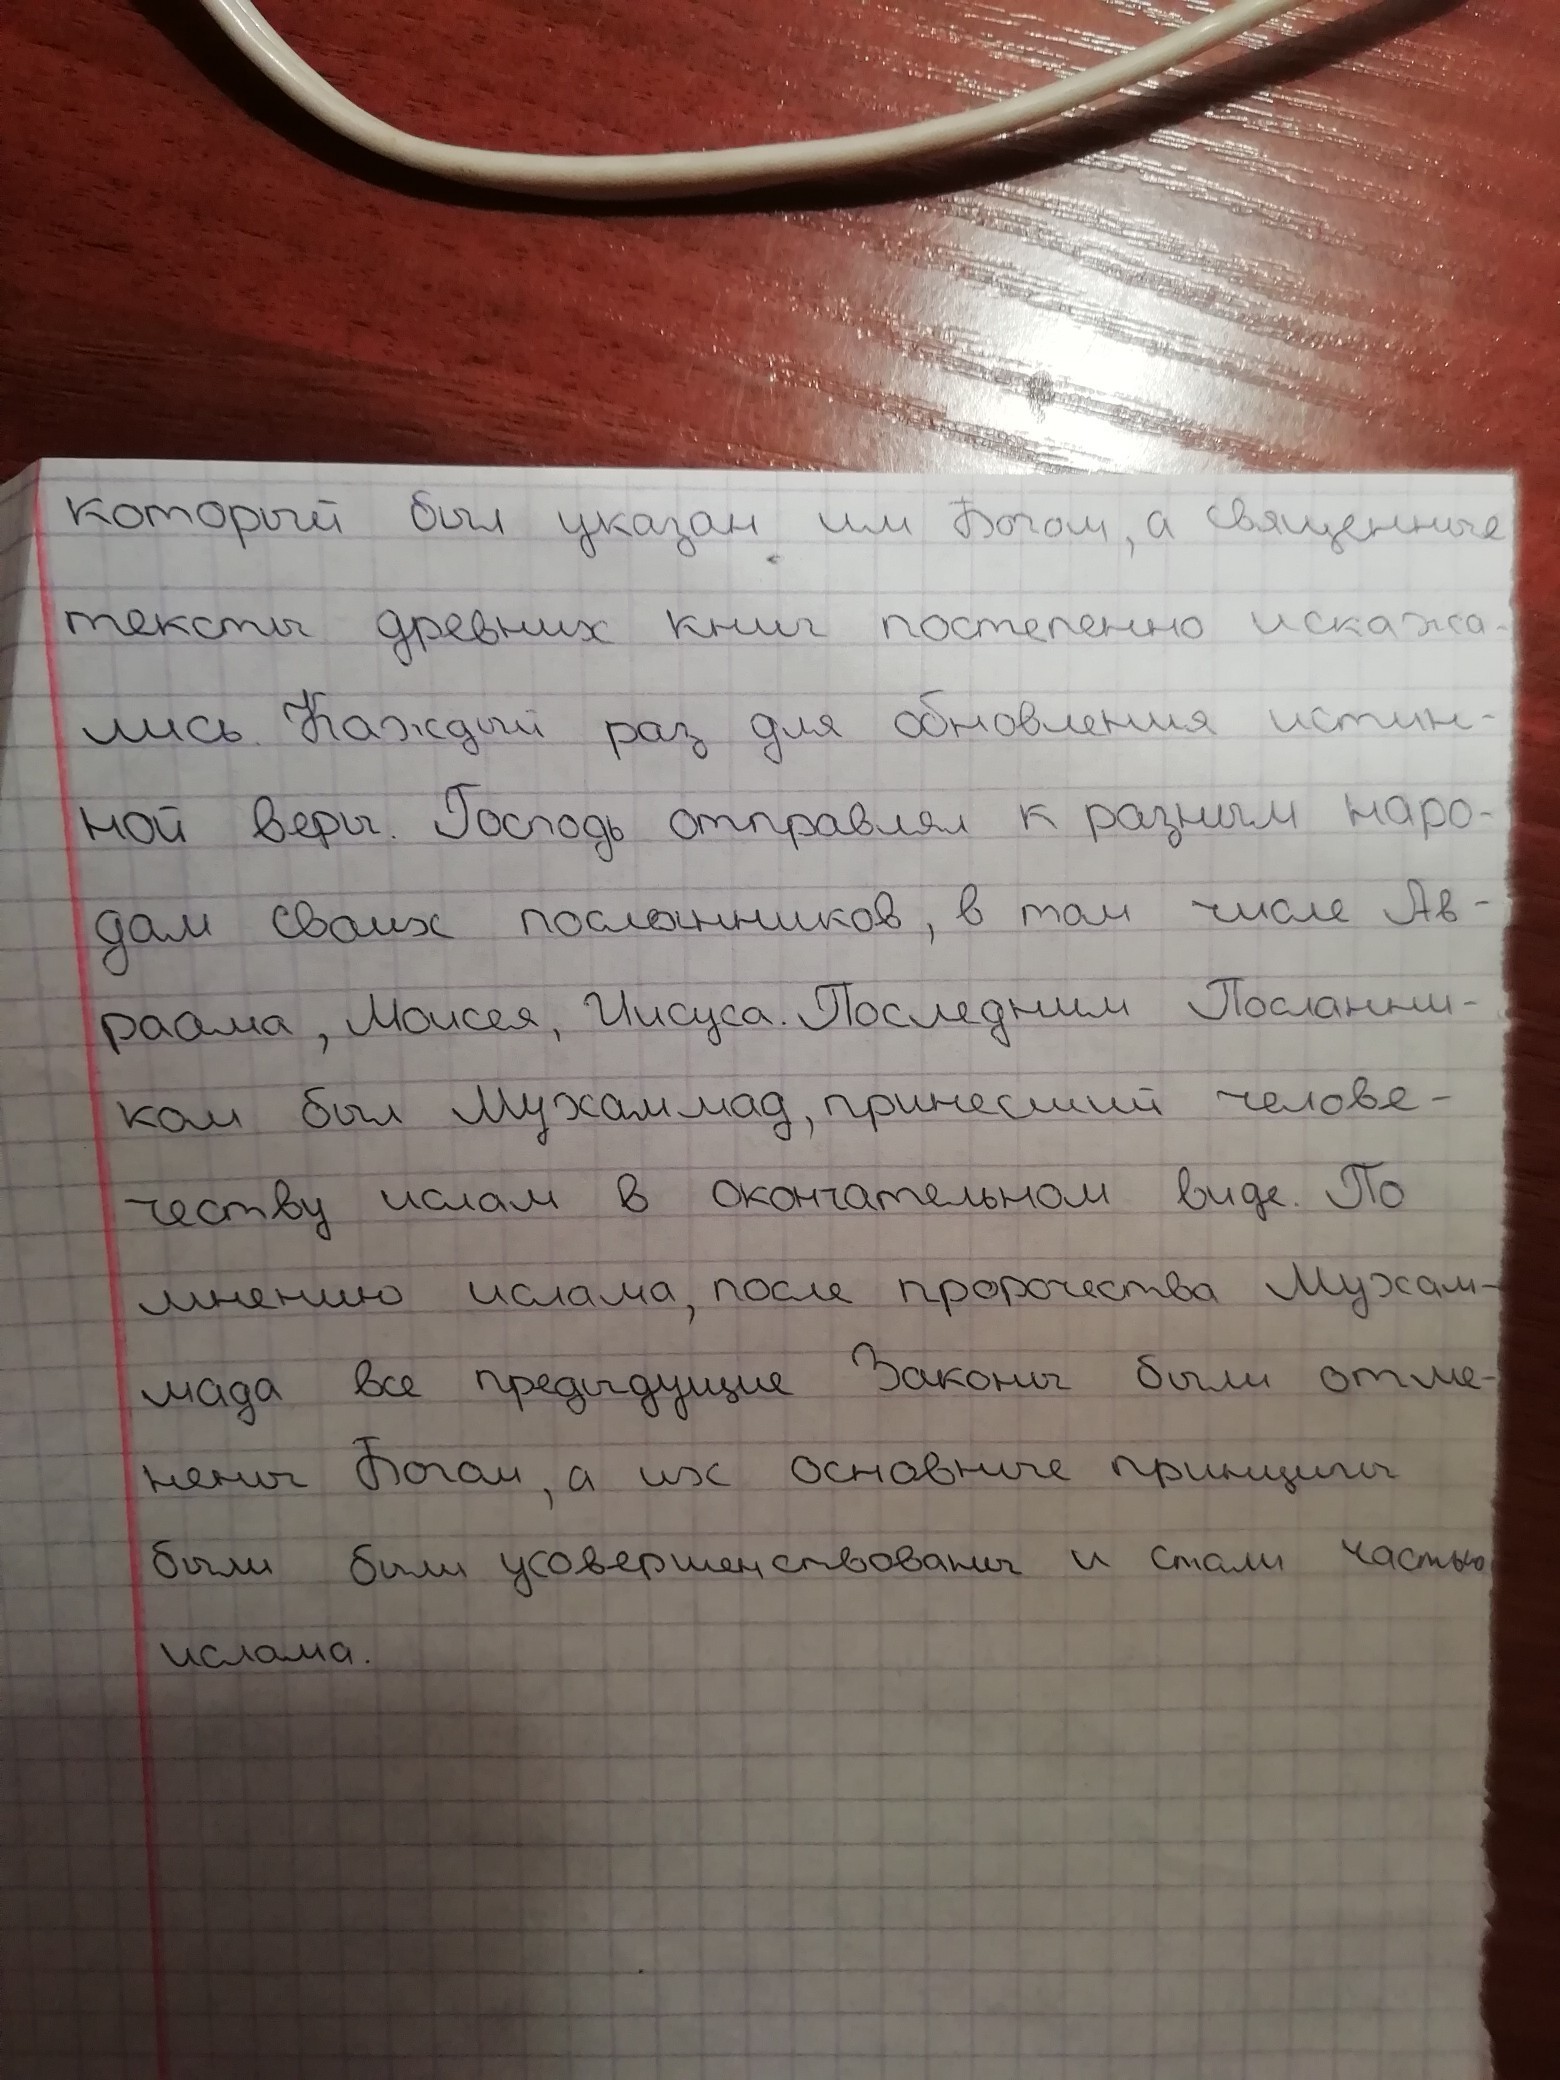 который был указан им Богом, а священные
тексты древних книг постепенно искажа-
лись. Каждый раз для обновления истин-
ной веры. Господь отправлял к разным наро-
дам своих посланников, в том числе Ав-
раама, Моисея, Иисуса. Последним Посланни-
ком был Мухаммад, принесший челове-
честву ислам в окончательном виде. По
мнению ислама, после пророчества Мухам-
мада все предыдущие Законы были отме-
нены Богом, а их основные принципы
были были усовершенствованы и стали частью
ислама.